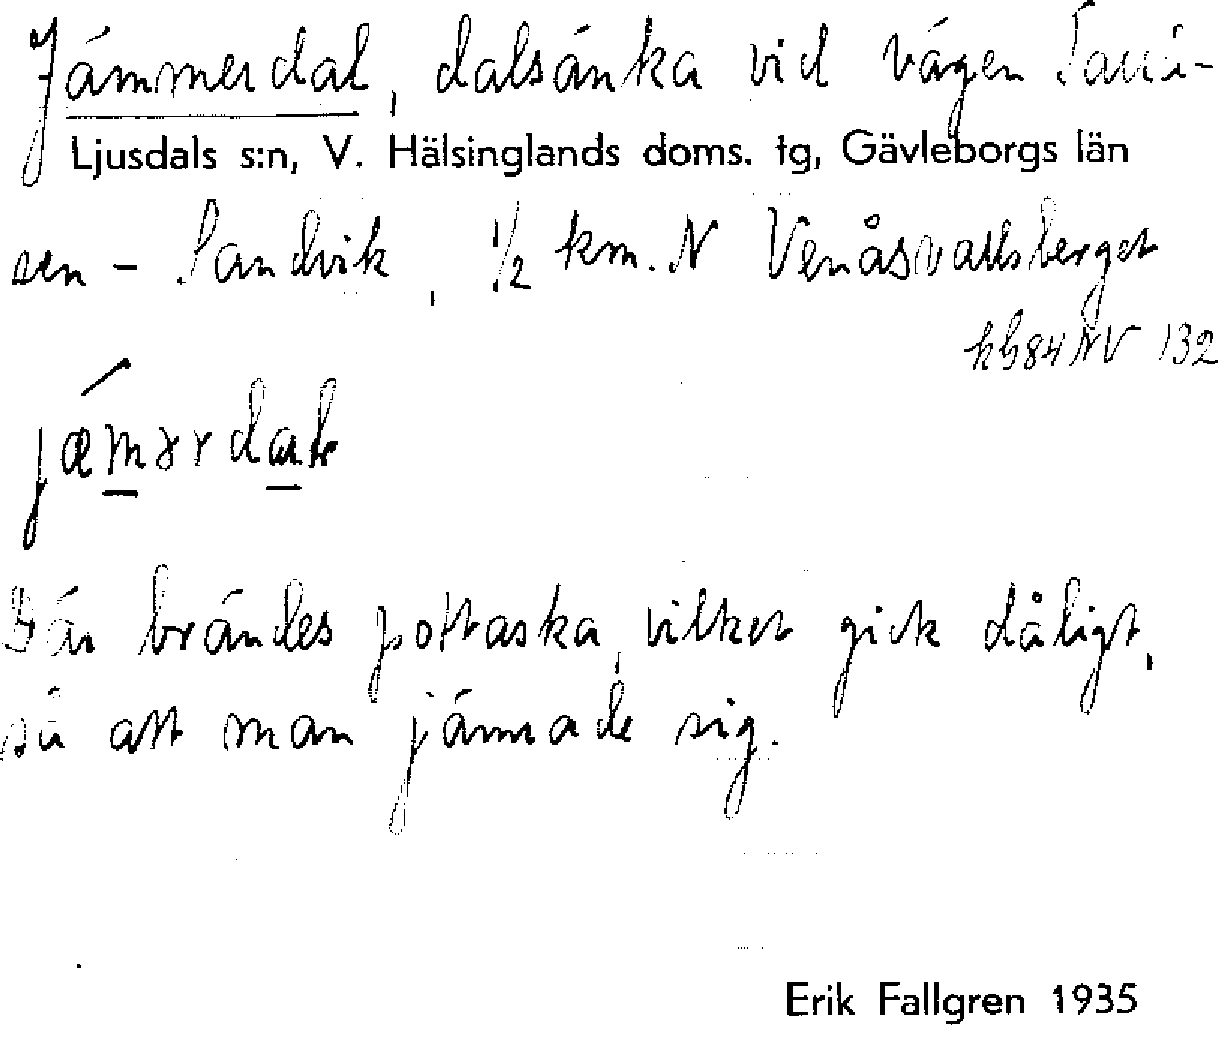 Jämmerdal, dalsänka vid vägen Tallå-
Ljusdals s:n, V. Hälsinglands doms. tg, Gävleborgs län
sen - Sandvik, 1/2 km. N Venåsvallsberget
kb84NV 132
Där brändes pottaska, vilket gick dåligt,
så att man jämrade sig.
Erik Fallgren 1935